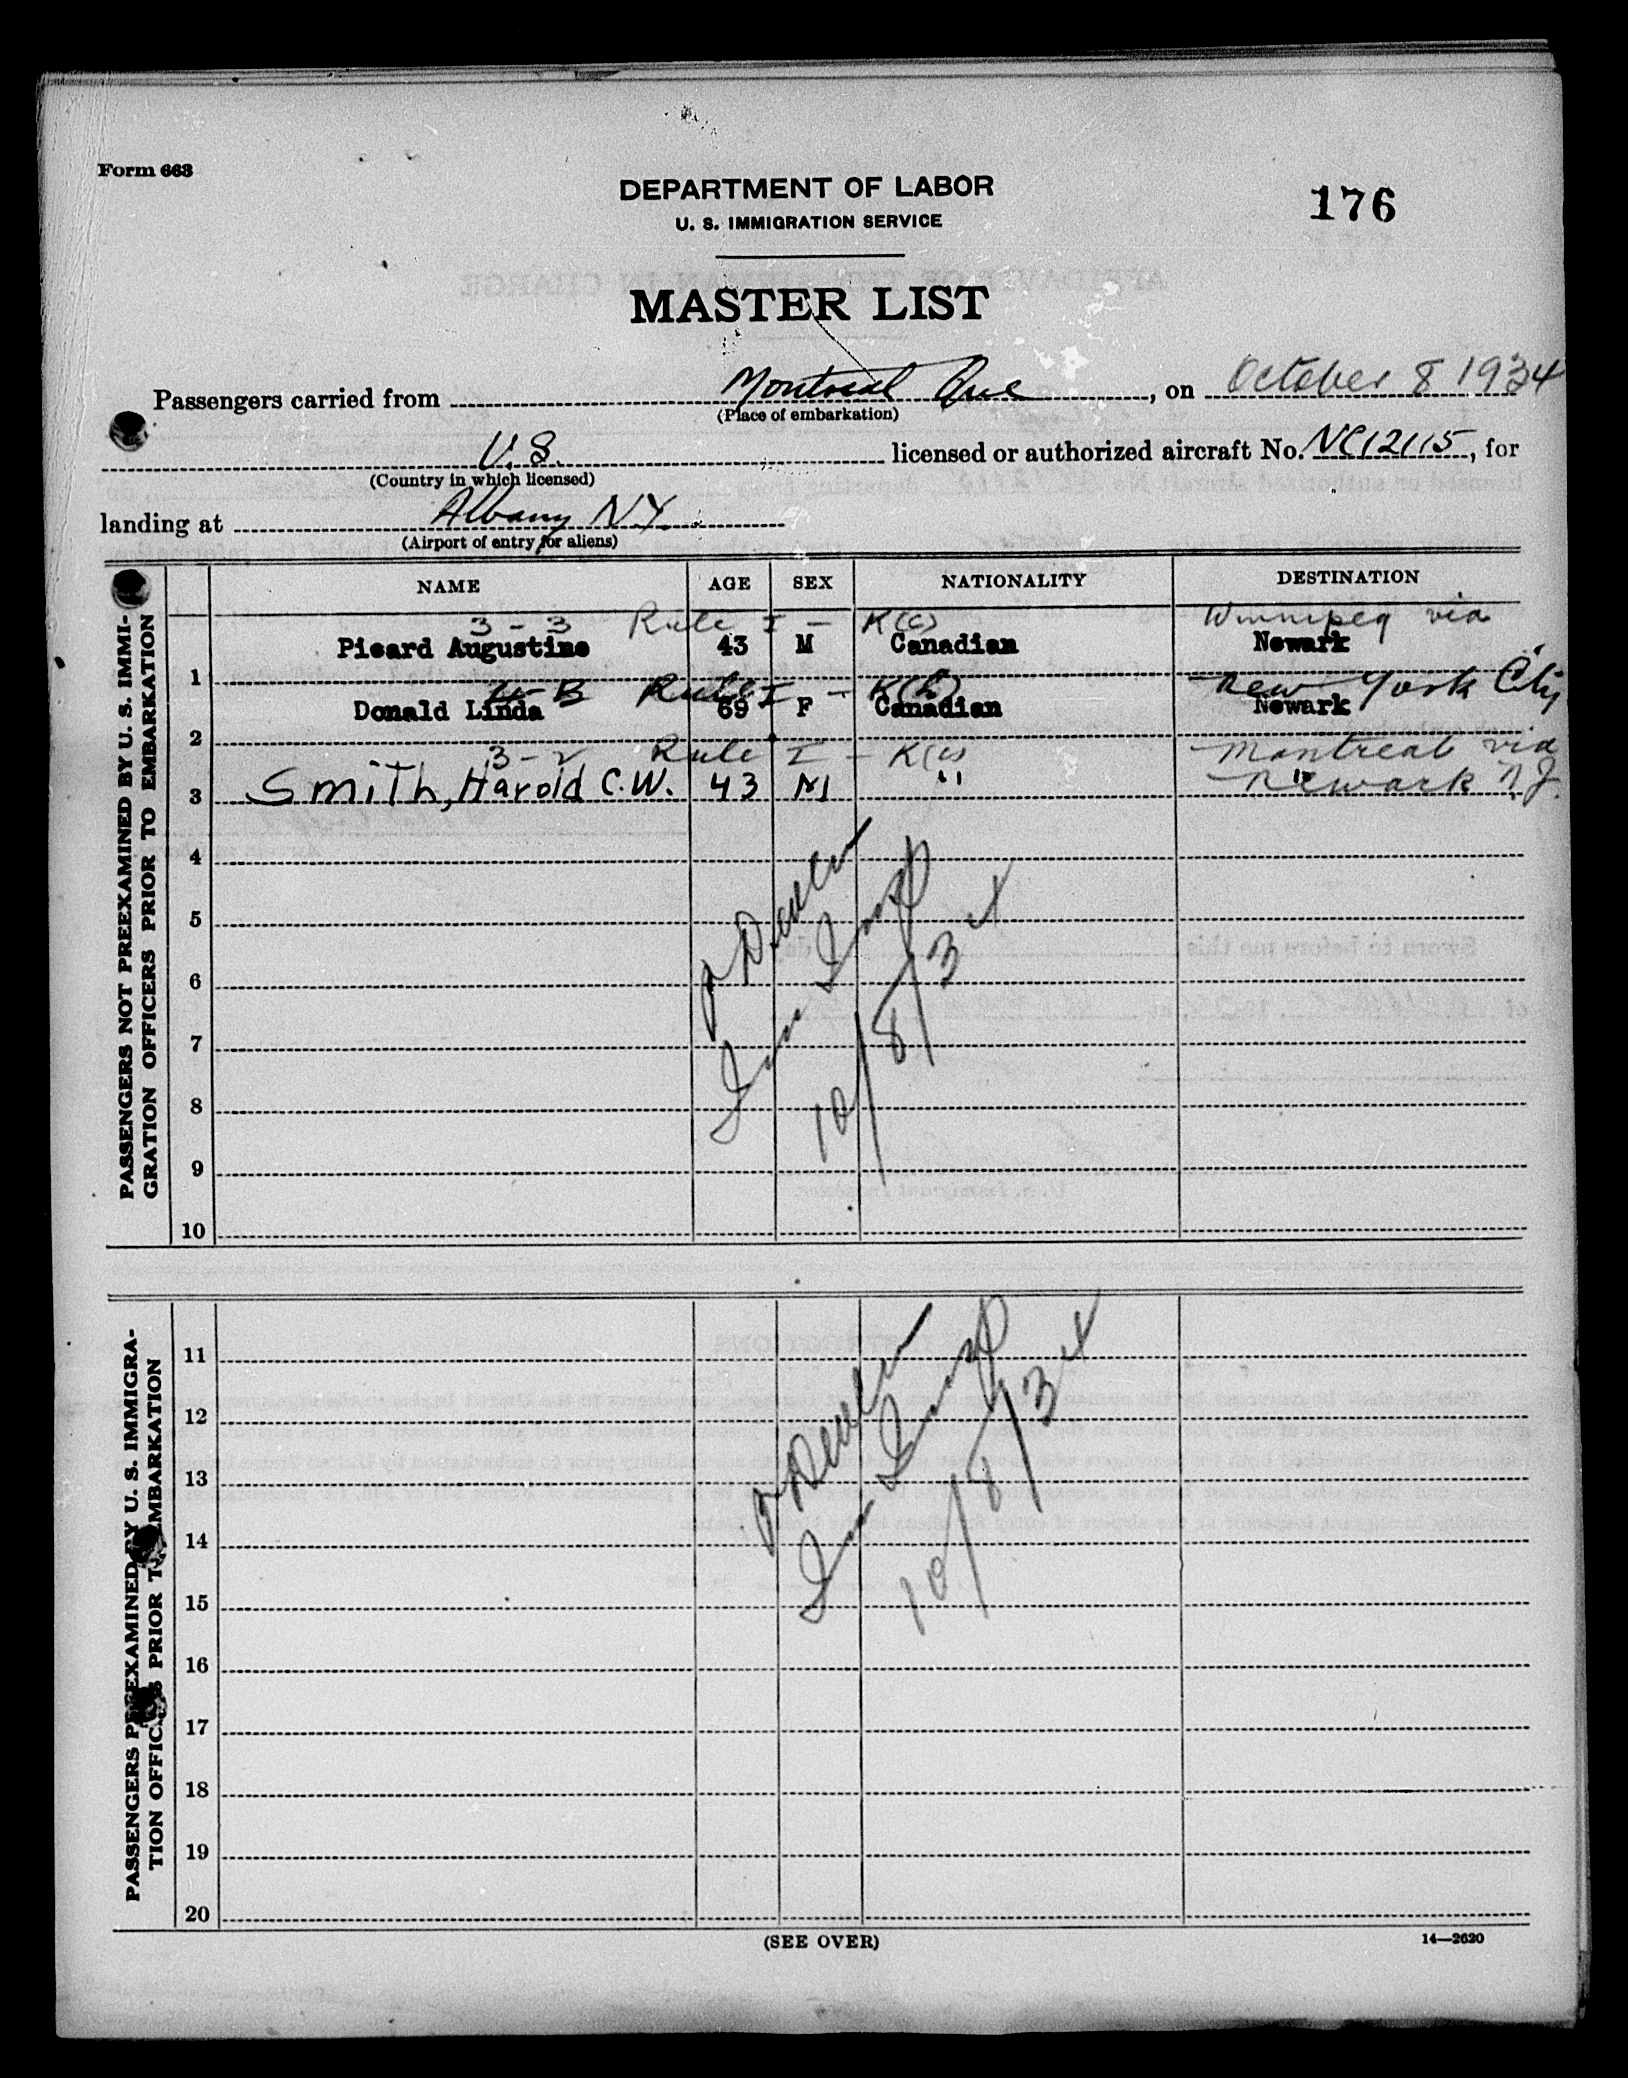 Form 663
DEPARTMENT OF LABOR
U. S. IMMIGRATION SERVICE
176
MASTER LIST
Passengers carried from Montreal Que, on October 8 1934
(Place of embarkation)
U.S. licensed or authorized aircraft No. NC12115, for
(Country in which licensed)
landing at Albany NY
(Airport of entry for aliens)
NAME AGE SEX NATIONALITY DESTINATION
PASSENGERS NOT PREEXAMINED BY U. S. IMMI-
GRATION OFFICERS PRIOR TO EMBARKATION
3-3 Rule I - K(c) Winnipeg via
1 Picard Augustine 43 M Canadian Newark
4-B Rule I - K( ) New York City
2 Donald Linda 69 F Canadian Newark
3-2 Rule I - K(c) Montreal via
3 Smith, Harold C.W. 43 M " " Newark N.J.
4
5
6
7
8
9
10
10/8/34
PASSENGERS PREEXAMINED BY U. S. IMMIGRA-
TION OFFICERS PRIOR TO EMBARKATION
11
12
13
14
15
16
17
18
19
20
10/8/34
(SEE OVER)
14—2620